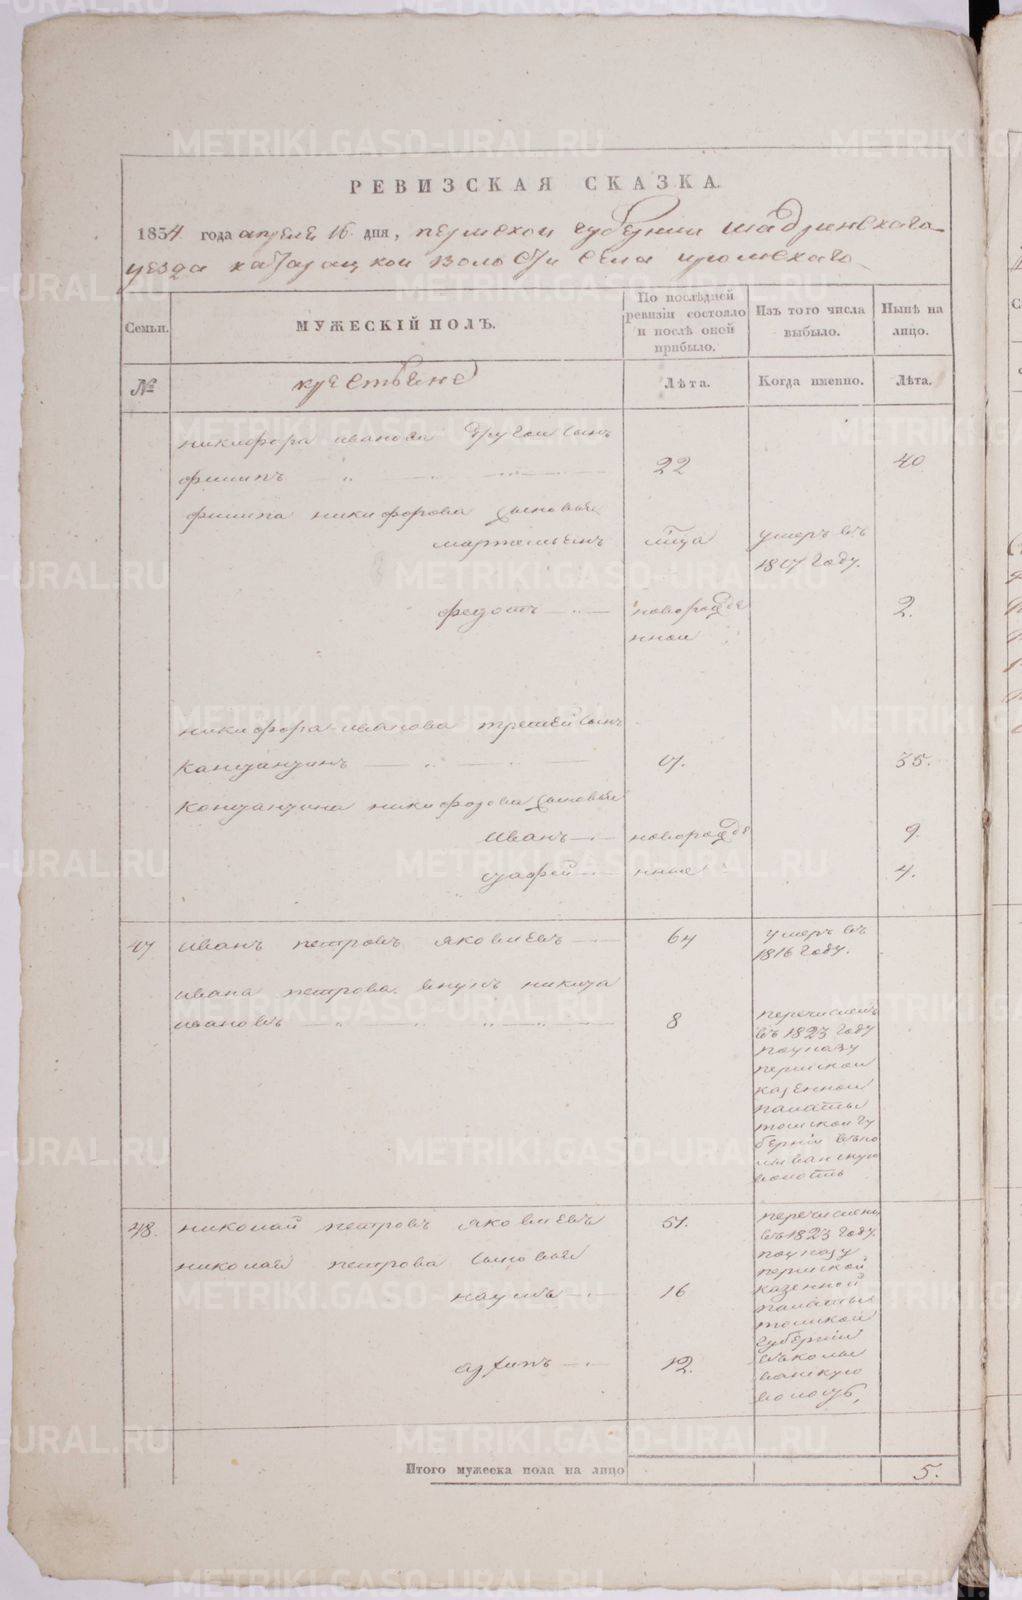 РЕВИЗСКАЯ СКАЗКА.
1834 года апреля 16 дня, пермской губернии шадринскаго
уезда катарацкой волости села
Семьи.
МУЖЕСКІЙ ПОЛЪ.
По послѣдней ревизіи состояло и послѣ оной прибыло.
Изъ того числа выбыло.
Нынѣ на лицо.
№
крестьяне
Лѣта.
Когда именно.
Лѣта.
никифора иванова другой сынъ
филипъ 22 40
филипа никифорова сыновья
умеръ въ
18 году.
федотъ новорожде 2.
нной
никифора иванова третей сынъ
Констянтинъ 17. 35.
Констянтина никифорова сыновья
Иванъ новорожде 9.
нные 4.
47 иванъ петровъ яковлевъ 64 умеръ въ
1816 году.
ивана петрова внукъ никита
ивановъ 8 перечисленъ
въ 1823 году
по указу
пермской
казенной
палаты
томской гу
берніи въ ко
лыванскую
волость
48. николай петровъ яковлевъ 51. перечислены
въ 1823 году.
николая петрова сыновья по указу
пермской
наумъ 16 казенной
палаты
томской
губерніи
архипъ 12. въ колы
ванскую
волость,
Итого мужеска пола на лицо 5.
METRIKI.GASO-URAL.RU